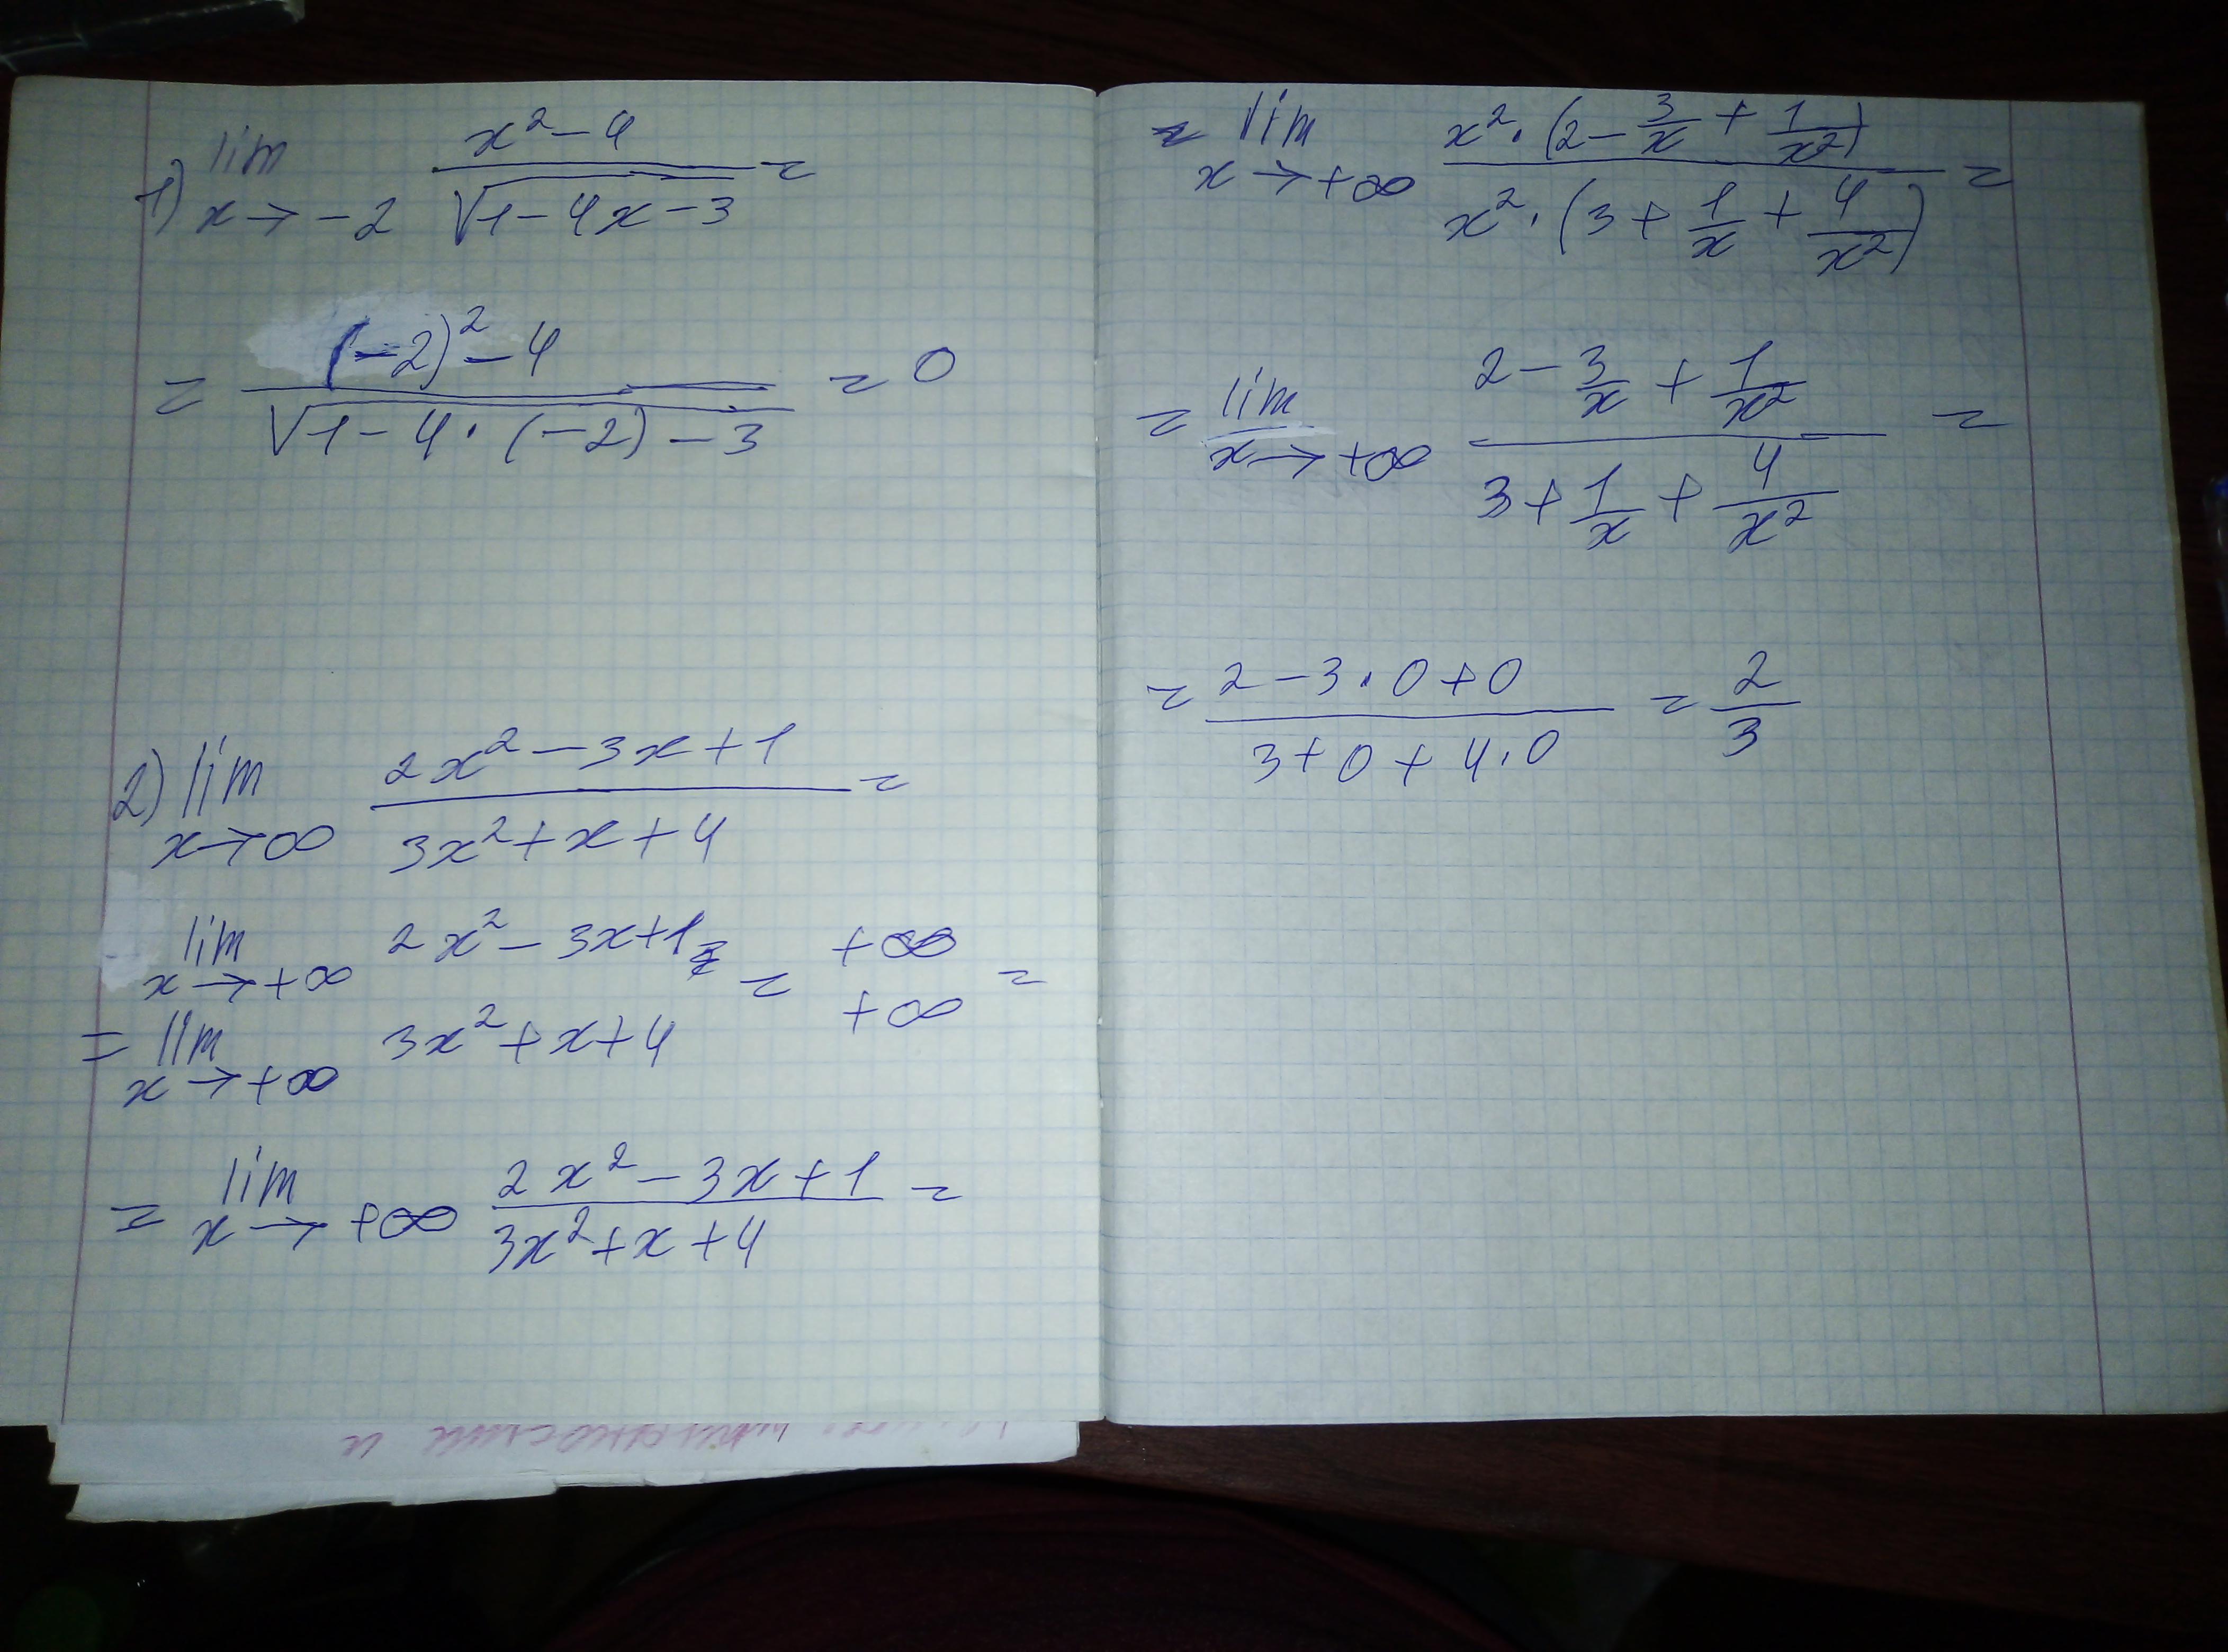 1) lim x→-2 (x² - 4)/(√(1-4x-3)) =
= ((-2)² - 4)/(√(1-4·(-2)-3)) = 0
2) lim x→∞ (2x² - 3x + 1)/(3x² + x + 4) =
lim x→+∞ 2x² - 3x + 1
= lim x→+∞ 3x² + x + 4 = +∞ +∞ =
= lim x→+∞ (2x² - 3x + 1)/(3x² + x + 4) =
= lim x→+∞ (x²·(2 - 3/x + 1/x²))/(x²·(3 + 1/x + 4/x²)) =
= lim x→+∞ (2 - 3/x + 1/x²)/(3 + 1/x + 4/x²) =
= (2 - 3·0 + 0)/(3 + 0 + 4·0) = 2/3